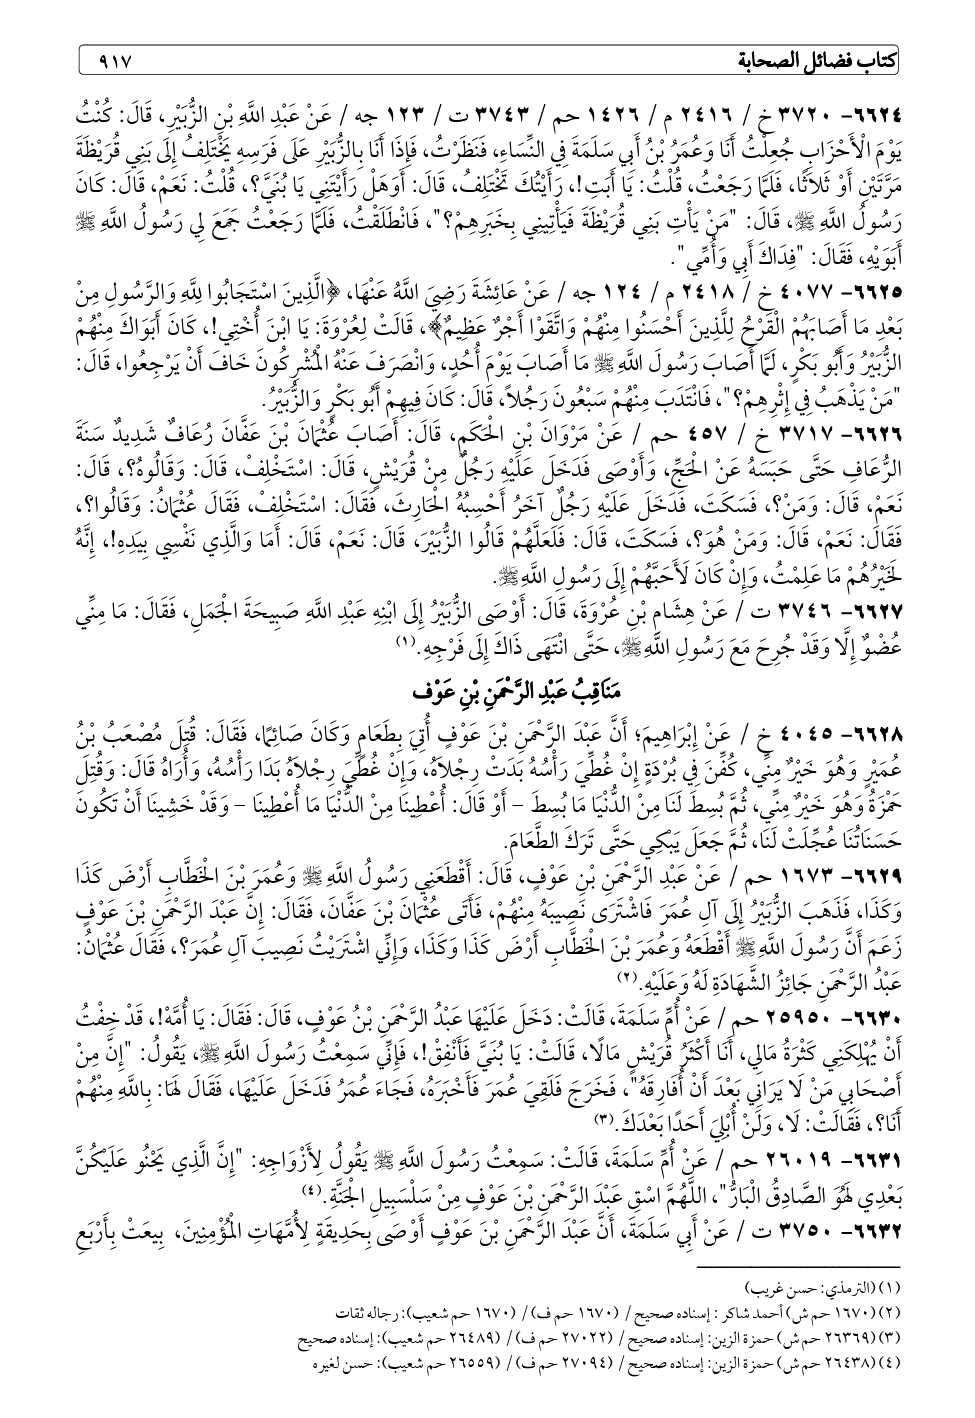 كتاب فضائل الصحابة ٩١٧
٦٦٢٤- ٣٧٢٠ خ / ٢٤١٦ م / ١٤٢٦ حم / ٣٧٤٣ ت / ١٢٣ جه / عَنْ عَبْدِ اللَّهِ بْنِ الزُّبَيْرِ، قَالَ: كُنْتُ
يَوْمَ الْأَحْزَابِ جُعِلْتُ أَنَا وَعُمَرُ بْنُ أَبِي سَلَمَةَ فِي النِّسَاءِ، فَنَظَرْتُ، فَإِذَا أَنَا بِالزُّبَيْرِ عَلَى فَرَسِهِ يَخْتَلِفُ إِلَى بَنِي قُرَيْظَةَ
مَرَّتَيْنِ أَوْ ثَلَاثًا، فَلَمَّا رَجَعْتُ، قُلْتُ: يَا أَبَتِ!، رَأَيْتُكَ تَخْتَلِفُ، قَالَ: أَوَهَلْ رَأَيْتَنِي يَا بُنَيَّ؟، قُلْتُ: نَعَمْ، قَالَ: كَانَ
رَسُولُ اللَّهِ ﷺ، قَالَ: "مَنْ يَأْتِ بَنِي قُرَيْظَةَ فَيَأْتِينِي بِخَبَرِهِمْ؟"، فَانْطَلَقْتُ، فَلَمَّا رَجَعْتُ جَمَعَ لِي رَسُولُ اللَّهِ ﷺ
أَبَوَيْهِ، فَقَالَ: "فِدَاكَ أَبِي وَأُمِّي".
٦٦٢٥- ٤٠٧٧ خ / ٢٤١٨ م / ١٢٤ جه / عَنْ عَائِشَةَ رَضِيَ اللَّهُ عَنْهَا، ﴿الَّذِينَ اسْتَجَابُوا لِلَّهِ وَالرَّسُولِ مِنْ
بَعْدِ مَا أَصَابَهُمُ الْقَرْحُ لِلَّذِينَ أَحْسَنُوا مِنْهُمْ وَاتَّقَوْا أَجْرٌ عَظِيمٌ﴾، قَالَتْ لِعُرْوَةَ: يَا ابْنَ أُخْتِي!، كَانَ أَبَوَاكَ مِنْهُمْ
الزُّبَيْرُ وَأَبُو بَكْرٍ، لَمَّا أَصَابَ رَسُولَ اللَّهِ ﷺ مَا أَصَابَ يَوْمَ أُحُدٍ، وَانْصَرَفَ عَنْهُ الْمُشْرِكُونَ خَافَ أَنْ يَرْجِعُوا، قَالَ:
"مَنْ يَذْهَبُ فِي إِثْرِهِمْ؟"، فَانْتَدَبَ مِنْهُمْ سَبْعُونَ رَجُلاً، قَالَ: كَانَ فِيهِمْ أَبُو بَكْرٍ وَالزُّبَيْرُ.
٦٦٢٦- ٣٧١٧ خ / ٤٥٧ حم / عَنْ مَرْوَانَ بْنِ الْحَكَمِ، قَالَ: أَصَابَ عُثْمَانَ بْنَ عَفَّانَ رُعَافٌ شَدِيدٌ سَنَةَ
الرُّعَافِ حَتَّى حَبَسَهُ عَنْ الْحَجِّ، وَأَوْصَى فَدَخَلَ عَلَيْهِ رَجُلٌ مِنْ قُرَيْشٍ، قَالَ: اسْتَخْلِفْ، قَالَ: وَقَالُوهُ؟، قَالَ:
نَعَمْ، قَالَ: وَمَنْ؟، فَسَكَتَ، فَدَخَلَ عَلَيْهِ رَجُلٌ آخَرُ أَحْسِبُهُ الْحَارِثَ، فَقَالَ: اسْتَخْلِفْ، فَقَالَ عُثْمَانُ: وَقَالُوا؟،
فَقَالَ: نَعَمْ، قَالَ: وَمَنْ هُوَ؟، فَسَكَتَ، قَالَ: فَلَعَلَّهُمْ قَالُوا الزُّبَيْرَ، قَالَ: نَعَمْ، قَالَ: أَمَا وَالَّذِي نَفْسِي بِيَدِهِ!، إِنَّهُ
لَخَيْرُهُمْ مَا عَلِمْتُ، وَإِنْ كَانَ لَأَحَبَّهُمْ إِلَى رَسُولِ اللَّهِ ﷺ.
٦٦٢٧- ٣٧٤٦ ت / عَنْ هِشَامِ بْنِ عُرْوَةَ، قَالَ: أَوْصَى الزُّبَيْرُ إِلَى ابْنِهِ عَبْدِ اللَّهِ صَبِيحَةَ الْجَمَلِ، فَقَالَ: مَا مِنِّي
عُضْوٌ إِلَّا وَقَدْ جُرِحَ مَعَ رَسُولِ اللَّهِ ﷺ، حَتَّى انْتَهَى ذَاكَ إِلَى فَرْجِهِ.(١)
مَنَاقِبُ عَبْدِ الرَّحْمَنِ بْنِ عَوْف
٦٦٢٨- ٤٠٤٥ خ / عَنْ إِبْرَاهِيمَ؛ أَنَّ عَبْدَ الرَّحْمَنِ بْنَ عَوْفٍ أُتِيَ بِطَعَامٍ وَكَانَ صَائِمًا، فَقَالَ: قُتِلَ مُصْعَبُ بْنُ
عُمَيْرٍ وَهُوَ خَيْرٌ مِنِّي، كُفِّنَ فِي بُرْدَةٍ إِنْ غُطِّيَ رَأْسُهُ بَدَتْ رِجْلاَهُ، وَإِنْ غُطِّيَ رِجْلاَهُ بَدَا رَأْسُهُ، وَأُرَاهُ قَالَ: وَقُتِلَ
حَمْزَةُ وَهُوَ خَيْرٌ مِنِّي، ثُمَّ بُسِطَ لَنَا مِنْ الدُّنْيَا مَا بُسِطَ – أَوْ قَالَ: أُعْطِينَا مِنْ الدُّنْيَا مَا أُعْطِينَا – وَقَدْ خَشِينَا أَنْ تَكُونَ
حَسَنَاتُنَا عُجِّلَتْ لَنَا، ثُمَّ جَعَلَ يَبْكِي حَتَّى تَرَكَ الطَّعَامَ.
٦٦٢٩- ١٦٧٣ حم / عَنْ عَبْدِ الرَّحْمَنِ بْنِ عَوْفٍ، قَالَ: أَقْطَعَنِي رَسُولُ اللَّهِ ﷺ وَعُمَرَ بْنَ الْخَطَّابِ أَرْضَ كَذَا
وَكَذَا، فَذَهَبَ الزُّبَيْرُ إِلَى آلِ عُمَرَ فَاشْتَرَى نَصِيبَهُ مِنْهُمْ، فَأَتَى عُثْمَانَ بْنَ عَفَّانَ، فَقَالَ: إِنَّ عَبْدَ الرَّحْمَنِ بْنَ عَوْفٍ
زَعَمَ أَنَّ رَسُولَ اللَّهِ ﷺ أَقْطَعَهُ وَعُمَرَ بْنَ الْخَطَّابِ أَرْضَ كَذَا وَكَذَا، وَإِنِّي اشْتَرَيْتُ نَصِيبَ آلِ عُمَرَ؟، فَقَالَ عُثْمَانُ:
عَبْدُ الرَّحْمَنِ جَائِزُ الشَّهَادَةِ لَهُ وَعَلَيْهِ.(٢)
٦٦٣٠- ٢٥٩٥٠ حم / عَنْ أُمِّ سَلَمَةَ، قَالَتْ: دَخَلَ عَلَيْهَا عَبْدُ الرَّحْمَنِ بْنُ عَوْفٍ، قَالَ: فَقَالَ: يَا أُمَّهْ!، قَدْ خِفْتُ
أَنْ يُهْلِكَنِي كَثْرَةُ مَالِي، أَنَا أَكْثَرُ قُرَيْشٍ مَالًا، قَالَتْ: يَا بُنَيَّ فَأَنْفِقْ!، فَإِنِّي سَمِعْتُ رَسُولَ اللَّهِ ﷺ، يَقُولُ: "إِنَّ مِنْ
أَصْحَابِي مَنْ لَا يَرَانِي بَعْدَ أَنْ أُفَارِقَهُ"، فَخَرَجَ فَلَقِيَ عُمَرَ فَأَخْبَرَهُ، فَجَاءَ عُمَرُ فَدَخَلَ عَلَيْهَا، فَقَالَ لَهَا: بِاللَّهِ مِنْهُمْ
أَنَا؟، فَقَالَتْ: لَا، وَلَنْ أُبْلِيَ أَحَدًا بَعْدَكَ.(٣)
٦٦٣١- ٢٦٠١٩ حم / عَنْ أُمِّ سَلَمَةَ، قَالَتْ: سَمِعْتُ رَسُولَ اللَّهِ ﷺ يَقُولُ لِأَزْوَاجِهِ: "إِنَّ الَّذِي يَحْنُو عَلَيْكُنَّ
بَعْدِي لَهُوَ الصَّادِقُ الْبَارُّ"، اللَّهُمَّ اسْقِ عَبْدَ الرَّحْمَنِ بْنَ عَوْفٍ مِنْ سَلْسَبِيلِ الْجَنَّةِ.(٤)
٦٦٣٢- ٣٧٥٠ ت / عَنْ أَبِي سَلَمَةَ، أَنَّ عَبْدَ الرَّحْمَنِ بْنَ عَوْفٍ أَوْصَى بِحَدِيقَةٍ لِأُمَّهَاتِ الْمُؤْمِنِينَ، بِيعَتْ بِأَرْبَعِ
(١) (الترمذي: حسن غريب)
(٢) (١٦٧٠ حم ش) أحمد شاكر: إسناده صحيح / (١٦٧٠ حم ف) / (١٦٧٠ حم شعيب): رجاله ثقات
(٣) (٢٦٣٦٩ حم ش) حمزة الزين: إسناده صحيح / (٢٧٠٢٢ حم ف) / (٢٦٤٨٩ حم شعيب): إسناده صحيح
(٤) (٢٦٤٣٨ حم ش) حمزة الزين: إسناده صحيح / (٢٧٠٩٤ حم ف) / (٢٦٥٥٩ حم شعيب): حسن لغيره